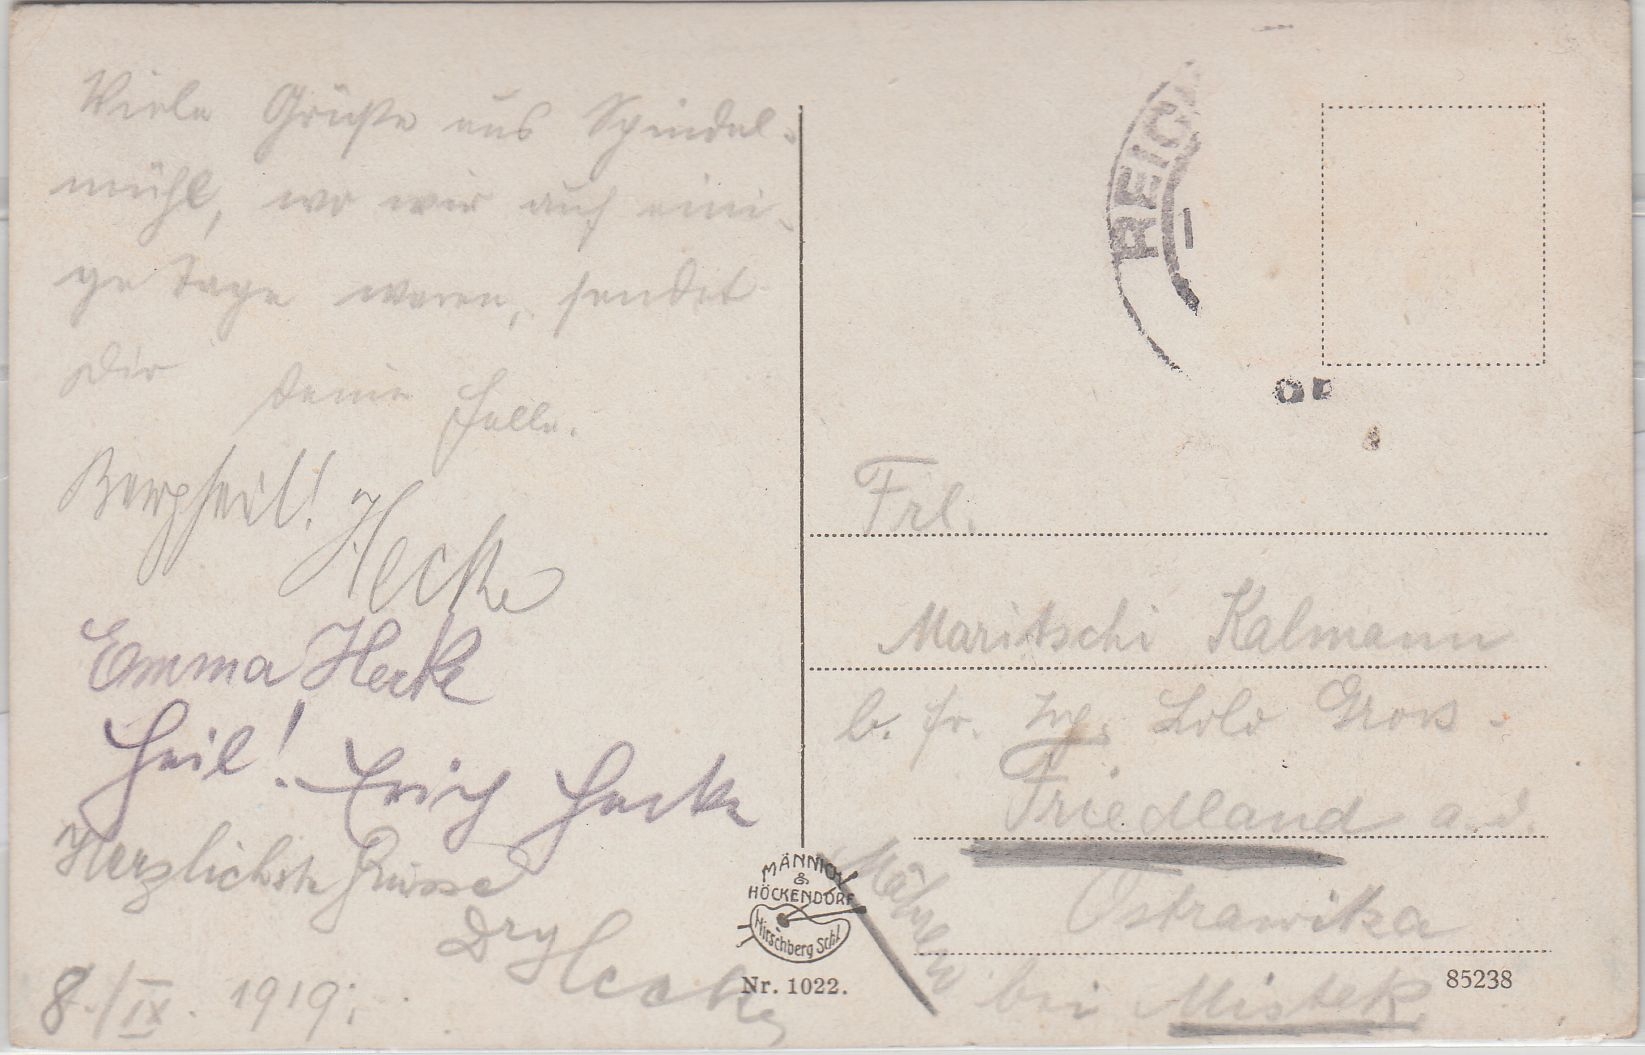 Viele Grüße aus Spindel-
mühl, wo wir auf eini-
ge Tage waren, sendet
Dir deine Helle.
Bergheil! Hecke
Emma Hecke
Heil! Erich Hecke
Herzlichste Grüsse
Hecke
8./IX. 1919.
REIC
MÄNNICH
&
HÖCKENDORF
Hirschberg Schl.
Nr. 1022.
Frl.
Maritschi Kalmann
b. Fr. Ing. Lolo Gross
Friedland a. d.
Ostrawitza
bei Mistek.
Mähren
85238